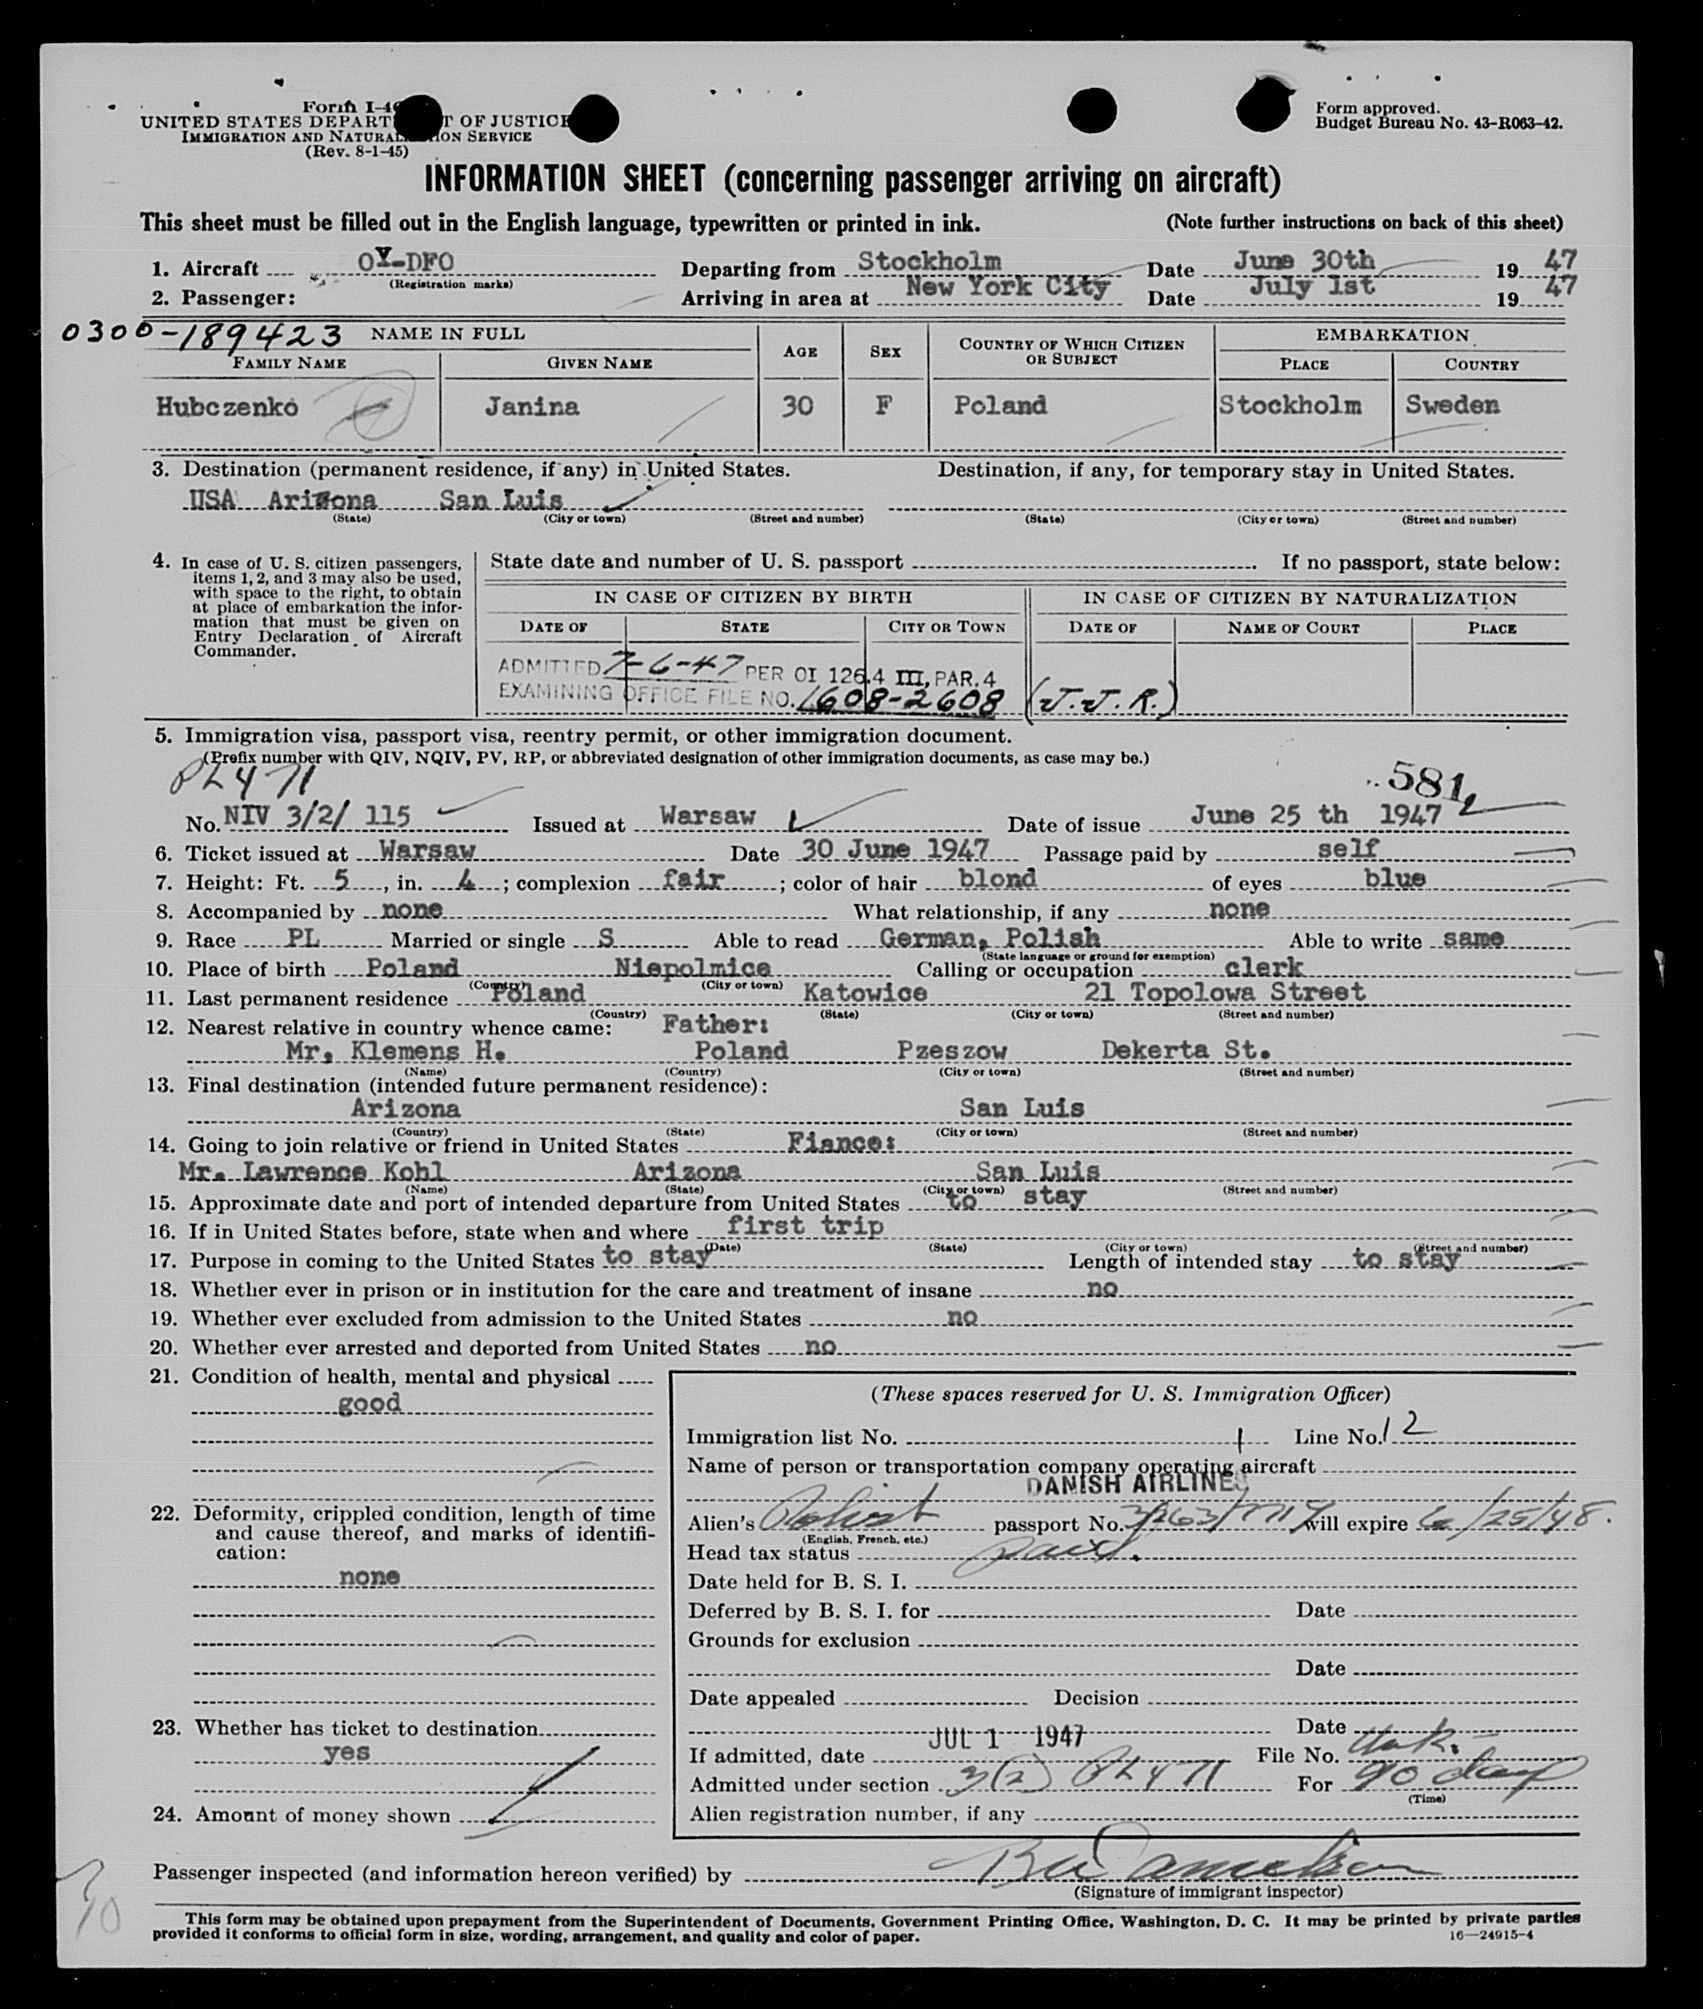 Form I-4
UNITED STATES DEPART T OF JUSTICE
IMMIGRATION AND NATURAL ION SERVICE
(Rev. 8-1-45)
Form approved.
Budget Bureau No. 43-R063-42.
INFORMATION SHEET (concerning passenger arriving on aircraft)
This sheet must be filled out in the English language, typewritten or printed in ink. (Note further instructions on back of this sheet)
1. Aircraft OY-DFO Departing from Stockholm Date June 30th 1947
(Registration marks)
2. Passenger: Arriving in area at New York City Date July 1st 1947
0300-189423 NAME IN FULL EMBARKATION
FAMILY NAME GIVEN NAME AGE SEX COUNTRY OF WHICH CITIZEN OR SUBJECT PLACE COUNTRY
Hubczenko Janina 30 F Poland Stockholm Sweden
3. Destination (permanent residence, if any) in United States. Destination, if any, for temporary stay in United States.
USA Arizona San Luis
(State) (City or town) (Street and number) (State) (City or town) (Street and number)
4. In case of U. S. citizen passengers,
items 1, 2, and 3 may also be used,
with space to the right, to obtain
at place of embarkation the infor-
mation that must be given on
Entry Declaration of Aircraft
Commander.
State date and number of U. S. passport If no passport, state below:
IN CASE OF CITIZEN BY BIRTH IN CASE OF CITIZEN BY NATURALIZATION
DATE OF STATE CITY OR TOWN DATE OF NAME OF COURT PLACE
ADMITTED 7-6-47 PER OI 126.4 III, PAR. 4
EXAMINING OFFICE FILE NO. 1608-2608 (J.J.R.)
5. Immigration visa, passport visa, reentry permit, or other immigration document.
(Prefix number with QIV, NQIV, PV, RP, or abbreviated designation of other immigration documents, as case may be.)
PL 471 581
No. NIV 3/2/ 115 Issued at Warsaw Date of issue June 25 th 1947
6. Ticket issued at Warsaw Date 30 June 1947 Passage paid by self
7. Height: Ft. 5, in. 4; complexion fair; color of hair blond of eyes blue
8. Accompanied by none What relationship, if any none
9. Race PL Married or single S Able to read German, Polish Able to write same
(State language or ground for exemption)
10. Place of birth Poland Niepolmice Calling or occupation clerk
(Country) (City or town)
11. Last permanent residence Poland Katowice 21 Topolowa Street
(Country) (State) (City or town) (Street and number)
12. Nearest relative in country whence came: Father:
Mr. Klemens H. Poland Pzeszow Dekerta St.
(Name) (Country) (City or town) (Street and number)
13. Final destination (intended future permanent residence):
Arizona San Luis
(Country) (State) (City or town) (Street and number)
14. Going to join relative or friend in United States Fiance:
Mr. Lawrence Kohl Arizona San Luis
(Name) (State) (City or town) (Street and number)
15. Approximate date and port of intended departure from United States to stay
16. If in United States before, state when and where first trip
(Date) (State) (City or town) (Street and number)
17. Purpose in coming to the United States to stay Length of intended stay to stay
18. Whether ever in prison or in institution for the care and treatment of insane no
19. Whether ever excluded from admission to the United States no
20. Whether ever arrested and deported from United States no
21. Condition of health, mental and physical
good
22. Deformity, crippled condition, length of time
and cause thereof, and marks of identifi-
cation:
none
23. Whether has ticket to destination
yes
24. Amount of money shown
(These spaces reserved for U. S. Immigration Officer)
Immigration list No. 1 Line No. 12
Name of person or transportation company operating aircraft
DANISH AIRLINES
Alien's Polish passport No. will expire 6/25/48.
(English, French, etc.)
Head tax status paid.
Date held for B. S. I.
Deferred by B. S. I. for Date
Grounds for exclusion
Date
Date appealed Decision
Date
If admitted, date JUL 1 1947 File No.
Admitted under section 3(2) PL 471 For 90 days
(Time)
Alien registration number, if any
Passenger inspected (and information hereon verified) by
(Signature of immigrant inspector)
This form may be obtained upon prepayment from the Superintendent of Documents, Government Printing Office, Washington, D. C. It may be printed by private parties
provided it conforms to official form in size, wording, arrangement, and quality and color of paper.
16—24915-4